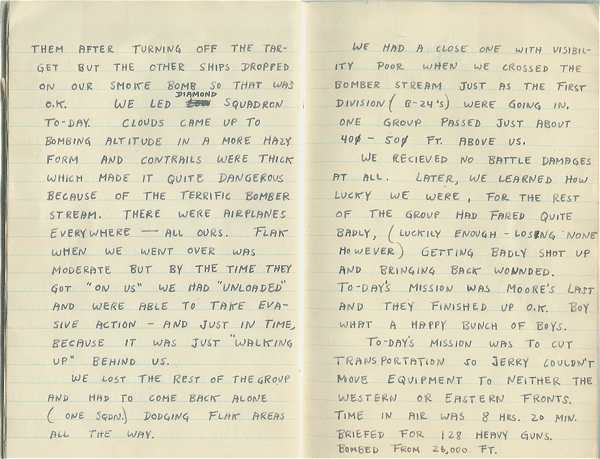 THEM AFTER TURNING OFF THE TAR-
GET BUT THE OTHER SHIPS DROPPED
ON OUR SMOKE BOMB SO THAT WAS
O.K. WE LED DIAMOND SQUADRON
TO-DAY. CLOUDS CAME UP TO
BOMBING ALTITUDE IN A MORE HAZY
FORM AND CONTRAILS WERE THICK
WHICH MADE IT QUITE DANGEROUS
BECAUSE OF THE TERRIFIC BOMBER
STREAM. THERE WERE AIRPLANES
EVERYWHERE — ALL OURS. FLAK
WHEN WE WENT OVER WAS
MODERATE BUT BY THE TIME THEY
GOT "ON US" WE HAD "UNLOADED"
AND WERE ABLE TO TAKE EVA-
SIVE ACTION - AND JUST IN TIME,
BECAUSE IT WAS JUST "WALKING
UP" BEHIND US.
WE LOST THE REST OF THE GROUP
AND HAD TO COME BACK ALONE
(ONE SQDN.) DODGING FLAK AREAS
ALL THE WAY.
WE HAD A CLOSE ONE WITH VISIBIL-
ITY POOR WHEN WE CROSSED THE
BOMBER STREAM JUST AS THE FIRST
DIVISION (B-24'S) WERE GOING IN.
ONE GROUP PASSED JUST ABOUT
400 - 500 FT. ABOVE US.
WE RECIEVED NO BATTLE DAMAGES
AT ALL. LATER, WE LEARNED HOW
LUCKY WE WERE, FOR THE REST
OF THE GROUP HAD FARED QUITE
BADLY, (LUCKILY ENOUGH - LOSING NONE
HOWEVER) GETTING BADLY SHOT UP
AND BRINGING BACK WOUNDED.
TO-DAY'S MISSION WAS MOORE'S LAST
AND THEY FINISHED UP O.K. BOY
WHAT A HAPPY BUNCH OF BOYS.
TO-DAY'S MISSION WAS TO CUT
TRANSPORTATION SO JERRY COULDN'T
MOVE EQUIPMENT TO NEITHER THE
WESTERN OR EASTERN FRONTS.
TIME IN AIR WAS 8 HRS. 20 MIN.
BRIEFED FOR 128 HEAVY GUNS.
BOMBED FROM 26,000 FT.